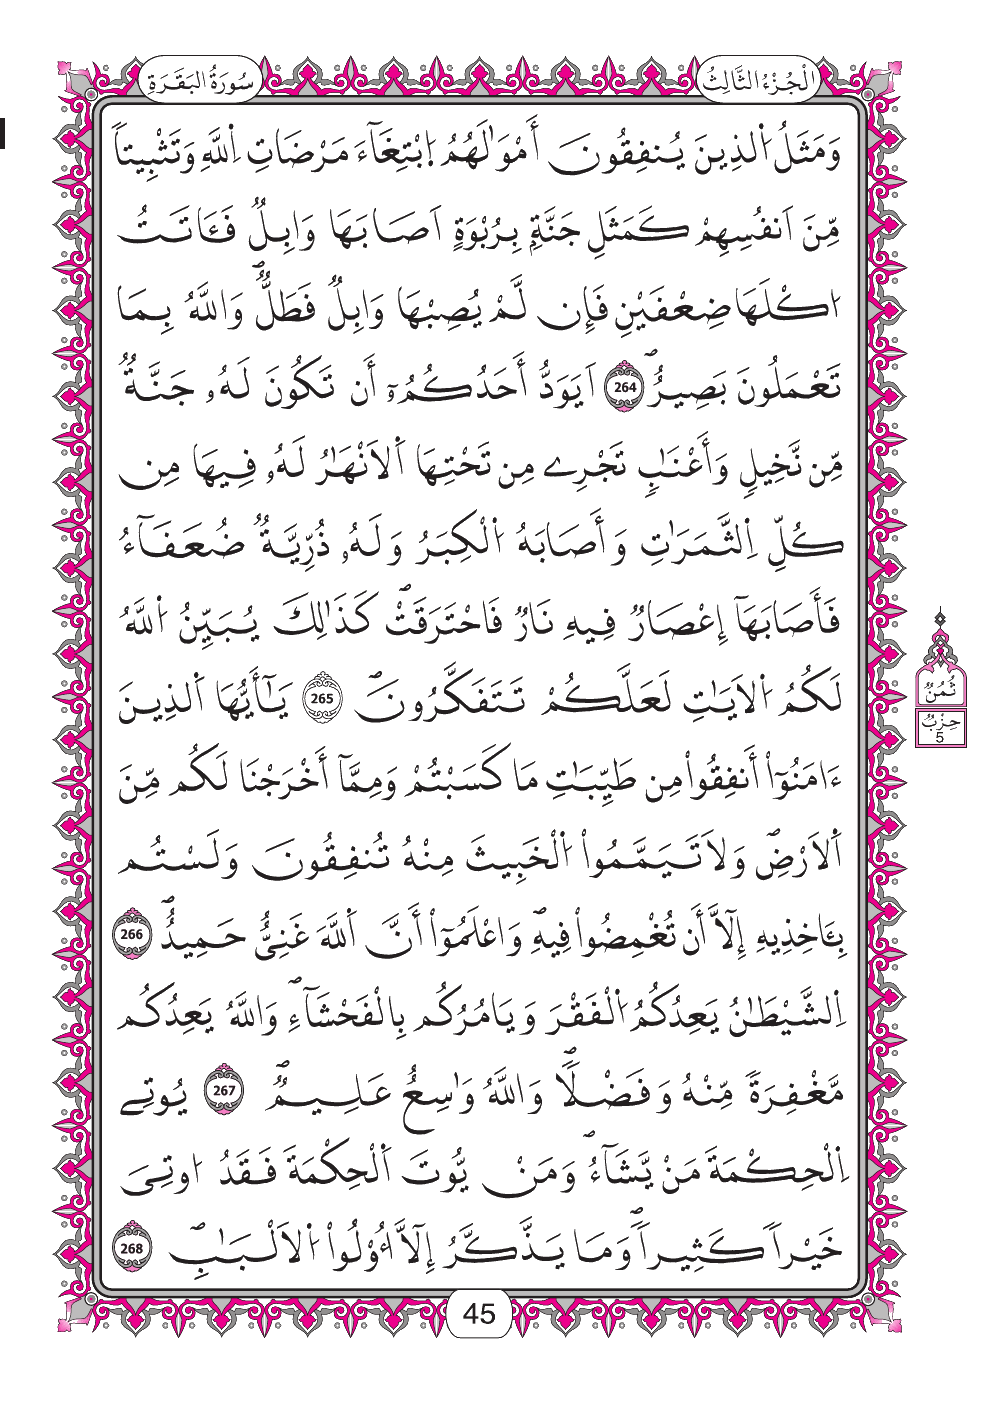 الْجُزْءُ الثَّالِثُ
سُورَةُ الْبَقَرَةِ
وَمَثَلُ اُ۬لذِينَ يُنفِقُونَ أَمْوَٰلَهُمُ اُ۪بْتِغَآءَ مَرْضَاتِ اِ۬للَّهِ وَتَثْبِيتاٗ
مِّنَ اَنفُسِهِمْ كَمَثَلِ جَنَّةِۢ بِرُبْوَةٍ اَصَابَهَا وَابِلٞ فَـَٔاتَتُ
ا۟كْلَهَا ضِعْفَيْنِ فَإِن لَّمْ يُصِبْهَا وَابِلٞ فَطَلّٞۖ وَاللَّهُ بِمَا
تَعْمَلُونَ بَصِيرٌۖ 264 اَيَوَدُّ أَحَدُكُمُۥٓ أَن تَكُونَ لَهُۥ جَنَّةٞ
مِّن نَّخِيلٖ وَأَعْنَٰبٖ تَجْرِے مِن تَحْتِهَا اَ۬لَانْهَٰرُ لَهُۥ فِيهَا مِن
كُلِّ اِ۬لثَّمَرَٰتِ وَأَصَابَهُ اُ۬لْكِبَرُ وَلَهُۥ ذُرِّيَّةٞ ضُعَفَآءُ
فَأَصَابَهَآ إِعْصَارٞ فِيهِ نَارٞ فَاحْتَرَقَتْۖ كَذَٰلِكَ يُبَيِّنُ اُ۬للَّهُ
لَكُمُ اُ۬لَايَٰتِ لَعَلَّكُمْ تَتَفَكَّرُونَۖ 265 يَٰٓأَيُّهَا اَ۬لذِينَ
ءَامَنُوٓاْ أَنفِقُواْ مِن طَيِّبَٰتِ مَا كَسَبْتُمْ وَمِمَّآ أَخْرَجْنَا لَكُم مِّنَ
اَ۬لَارْضِۖ وَلَا تَيَمَّمُواْ اُ۬لْخَبِيثَ مِنْهُ تُنفِقُونَ وَلَسْتُم
بِـَٔاخِذِيهِ إِلَّآ أَن تُغْمِضُواْ فِيهِۖ وَاعْلَمُوٓاْ أَنَّ اَ۬للَّهَ غَنِيٌّ حَمِيدٌۖ 266
اِ۬لشَّيْطَٰنُ يَعِدُكُمُ اُ۬لْفَقْرَ وَيَامُرُكُم بِالْفَحْشَآءِۖ وَاللَّهُ يَعِدُكُم
مَّغْفِرَةٗ مِّنْهُ وَفَضْلاٗۖ وَاللَّهُ وَٰسِعٌ عَلِيمٞۖ 267 يُوتِے
اِ۬لْحِكْمَةَ مَنْ يَّشَآءُۖ وَمَنْ يُّوتَ اَ۬لْحِكْمَةَ فَقَدُ ا۟وتِيَ
خَيْراٗ كَثِيراٗۖ وَمَا يَذَّكَّرُ إِلَّآ أُوْلُواْ اُ۬لَالْبَٰبِۖ 268
ثُمُنُ
حِزْبُ
5
45